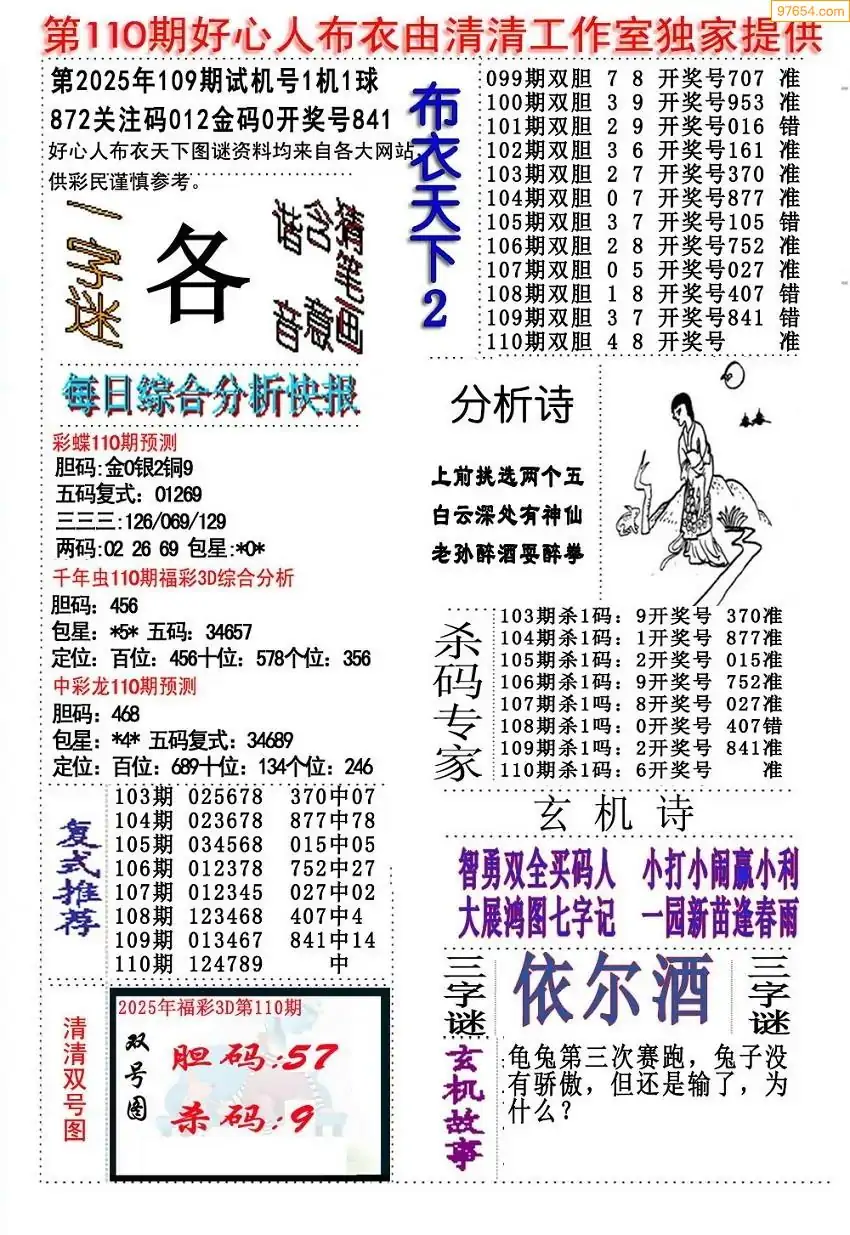 97654.com
第110期好心人布衣由清清工作室独家提供
第2025年109期试机号1机1球
872关注码012金码0开奖号841
好心人布衣天下图谜资料均来自各大网站,
供彩民谨慎参考。
一字迷
各
猜笔画
含意
谐音
每日综合分析快报
彩蝶110期预测
胆码:金0银2铜9
五码复式：01269
三三三:126/069/129
两码:02 26 69 包星:*0*
千年虫110期福彩3D综合分析
胆码：456
包星：*5* 五码：34657
定位：百位：456十位：578个位：356
中彩龙110期预测
胆码：468
包星：*4* 五码复式：34689
定位：百位：689十位：134个位：246
复式推荐
103期 025678 370中07
104期 023678 877中78
105期 034568 015中05
106期 012378 752中27
107期 012345 027中02
108期 123468 407中4
109期 013467 841中14
110期 124789 中
清清双号图
2025年福彩3D第110期
双号图
胆码:57
杀码:9
布衣天下2
099期双胆 7 8 开奖号707 准
100期双胆 3 9 开奖号953 准
101期双胆 2 9 开奖号016 错
102期双胆 3 6 开奖号161 准
103期双胆 2 7 开奖号370 准
104期双胆 0 7 开奖号877 准
105期双胆 3 7 开奖号105 错
106期双胆 2 8 开奖号752 准
107期双胆 0 5 开奖号027 准
108期双胆 1 8 开奖号407 错
109期双胆 3 7 开奖号841 错
110期双胆 4 8 开奖号 准
分析诗
上前挑选两个五
白云深处有神仙
老孙醉酒耍醉拳
杀码专家
103期杀1码：9开奖号 370准
104期杀1码：1开奖号 877准
105期杀1码：2开奖号 015准
106期杀1码：9开奖号 752准
107期杀1吗：8开奖号 027准
108期杀1吗：0开奖号 407错
109期杀1吗：2开奖号 841准
110期杀1码：6开奖号 准
玄机诗
智勇双全买码人 小打小闹赢小利
大展鸿图七字记 一园新苗逢春雨
三字谜
依尔酒
三字谜
玄机故事
龟兔第三次赛跑，兔子没
有骄傲，但还是输了，为
什么？